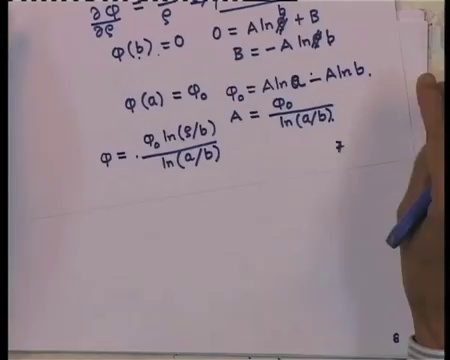 ∂φ/∂ρ = ρ
φ(b) = 0   0 = A ln b + B
B = -A ln b
φ(a) = φ₀   φ₀ = A ln a - A ln b.
A = φ₀ / ln(a/b).
φ = φ₀ ln(ρ/b) / ln(a/b)
7
8